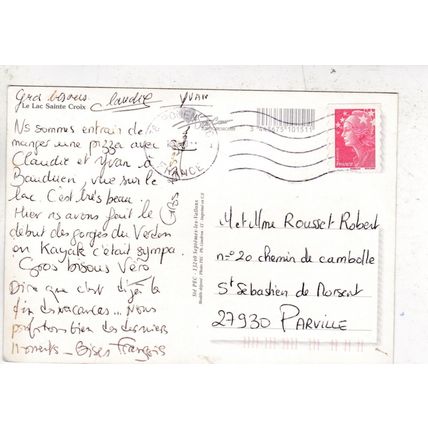 Gros bisous Claudie YVAN
Le Lac Sainte Croix
Ns sommes entrain de
manger une pizza avec
Claudie et Yvan à
Bauduen, vue sur le
lac. C'est très beau!
Hier ns avons fait le
début des gorges du Verdon
en Kayak c'était sympa.
Gros bisous Véro
Dire que c'est déjà la
fin des vacances... Nous
profitons bien des derniers
moments - Bises François
FRANCE
3 447675 101511
Mr et Mme Rousset Robert
n° 20 chemin de cambolle
St Sébastien de Morsent
27930 PARVILLE